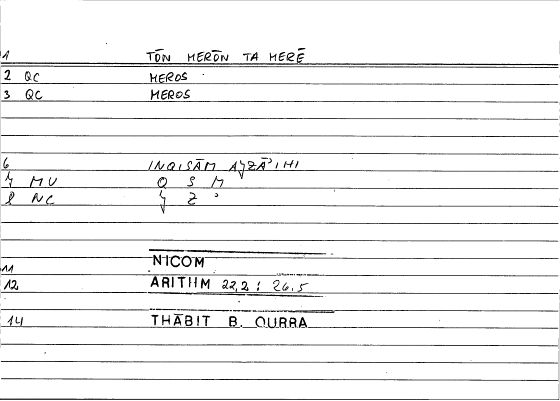 1 TŌN MERŌN TA MERĒ
2 QC MEROS
3 QC MEROS
6 INQISĀM AǧZĀʾIHI
7 MU Q S M
8 NC ǧ Z ʾ
11 NICOM
12 ARITHM 22,2 : 26.5
14 THĀBIT B. QURRA